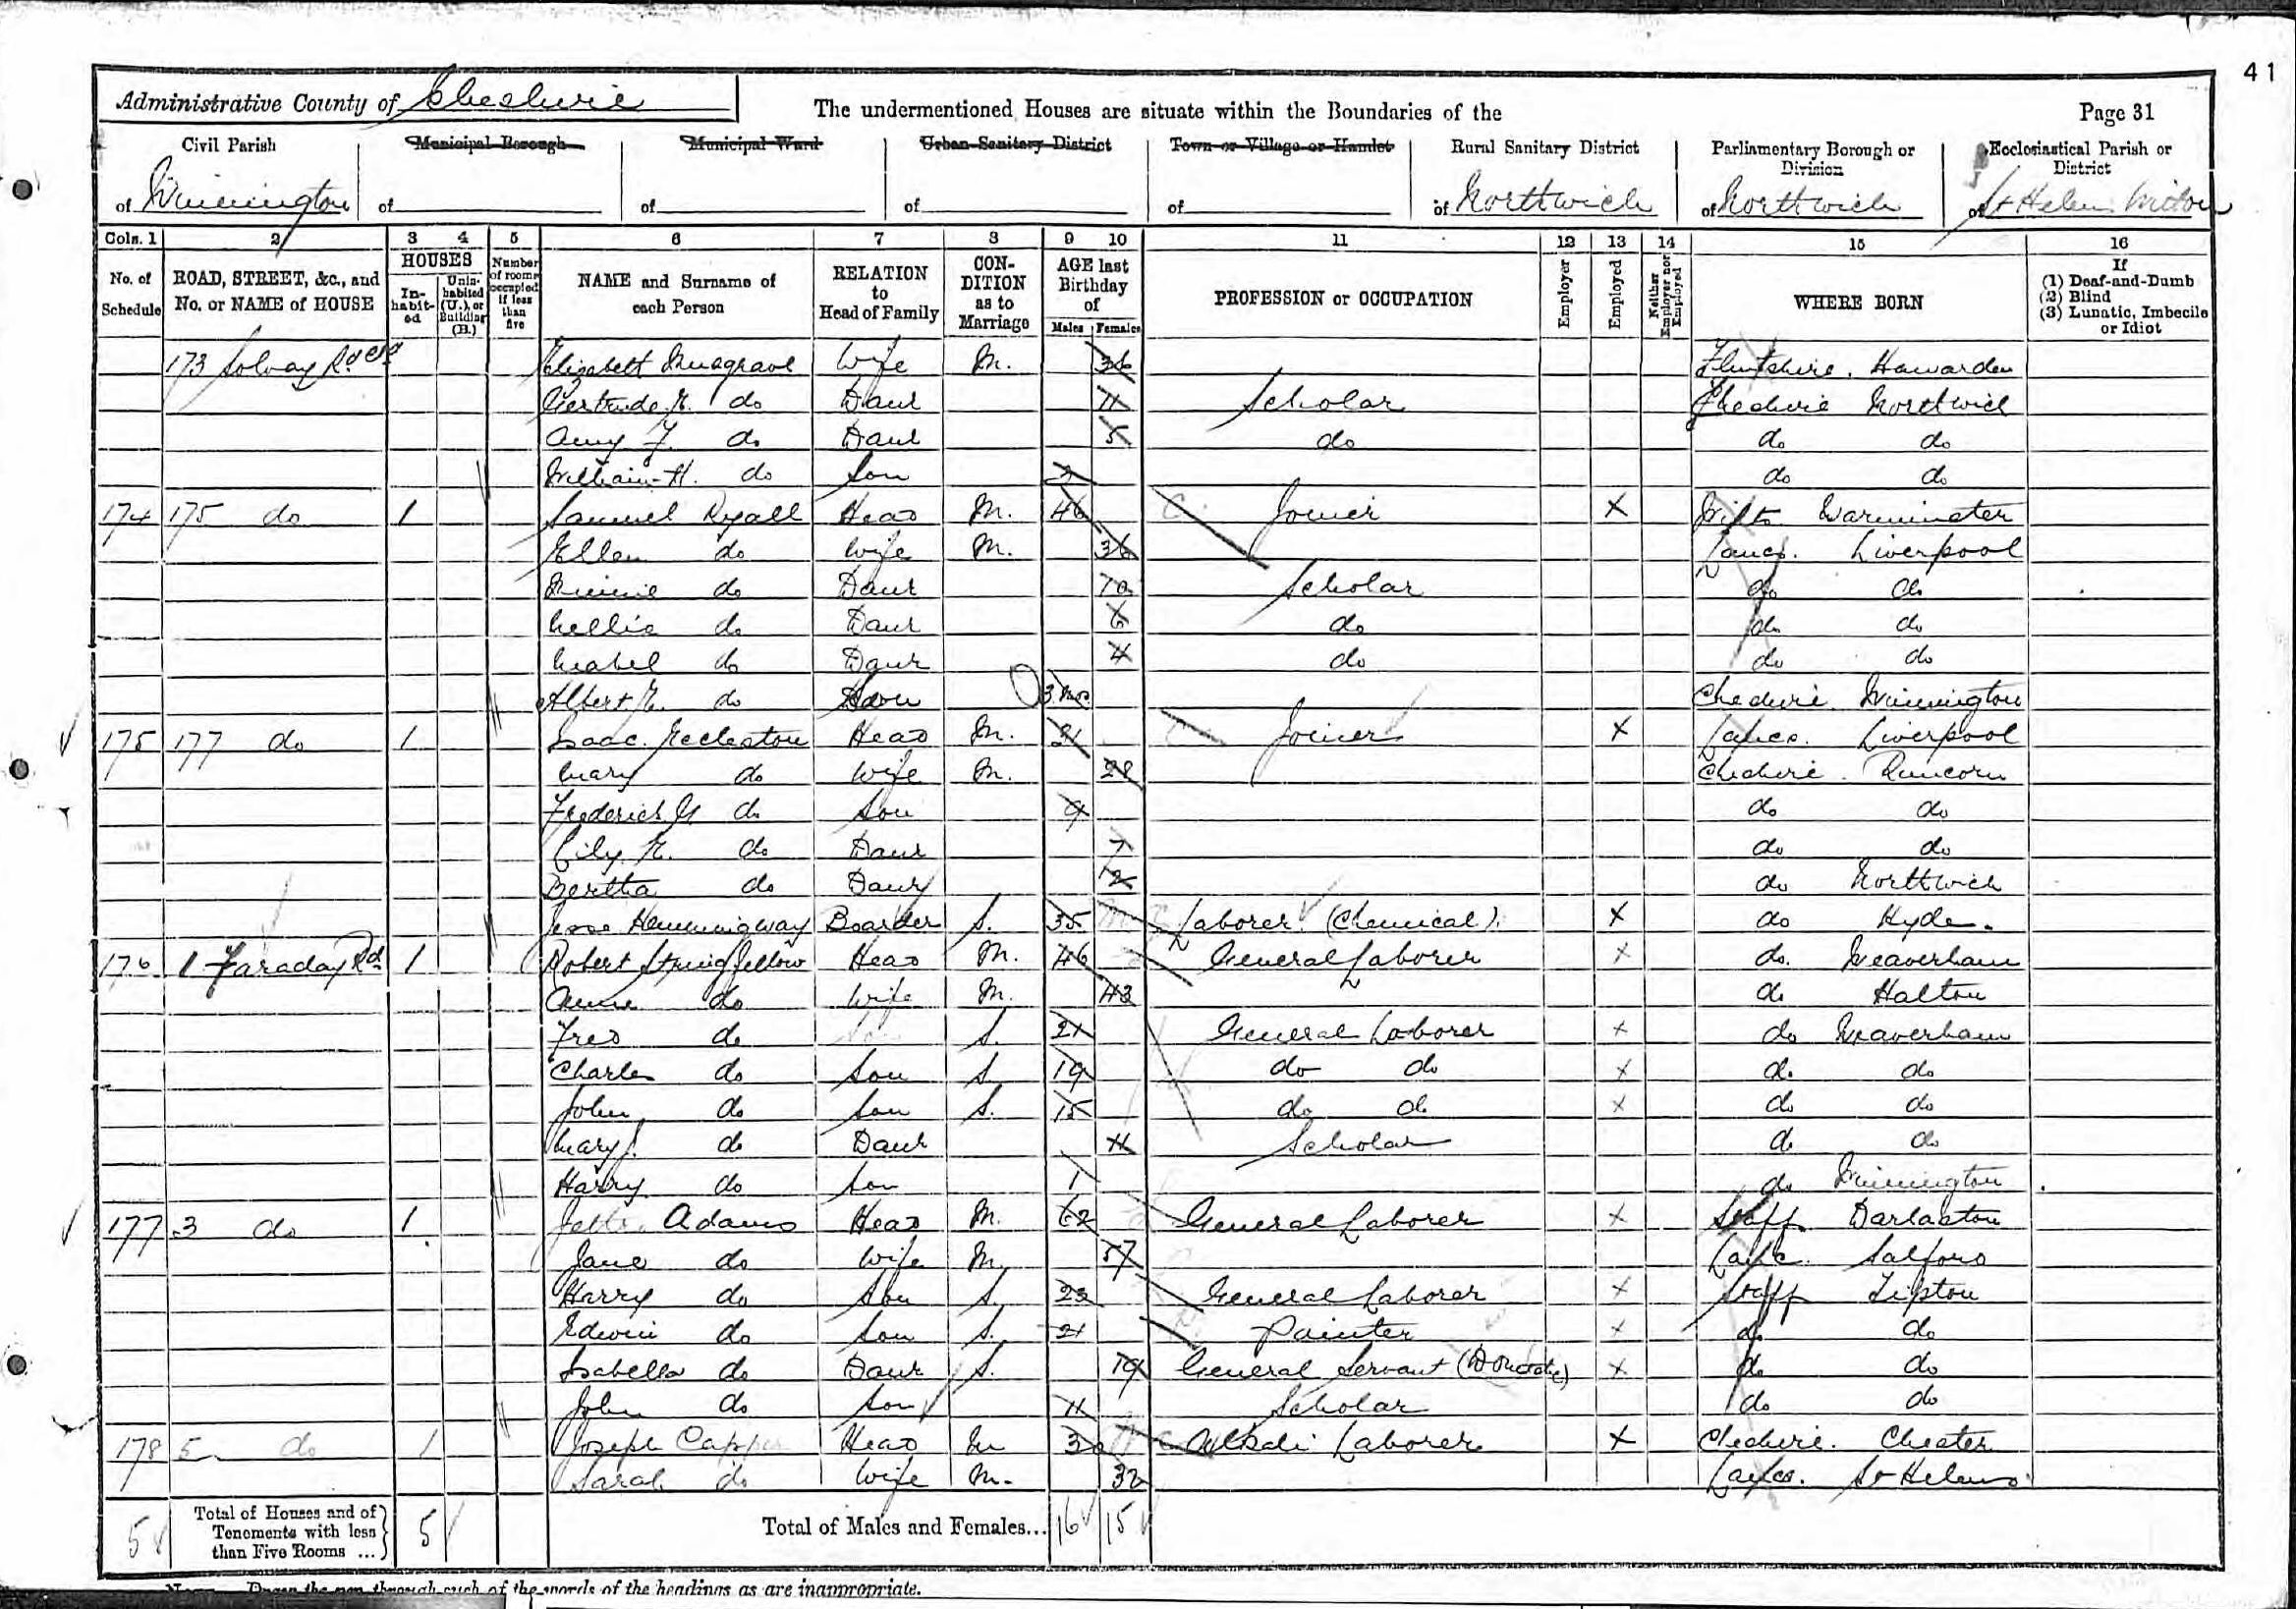 41
Administrative County of Cheshire The undermentioned Houses are situate within the Boundaries of the Page 31
Civil Parish Municipal Borough Municipal Ward Urban Sanitary District Town or Village or Hamlet Rural Sanitary District Parliamentary Borough or Division Ecclesiastical Parish or District
of Winnington of of of of of Northwich of Northwich of St Helen Witton
Cols. 1 2 3 4 5 6 7 8 9 10 11 12 13 14 15 16
No. of Schedule ROAD, STREET, &c., and No. or NAME of HOUSE HOUSES Inhabited Uninhabited (U.), or Building (B.) Number of rooms occupied if less than five NAME and Surname of each Person RELATION to Head of Family CONDITION as to Marriage AGE last Birthday of Males Females PROFESSION or OCCUPATION Employer Employed Neither Employer nor Employed WHERE BORN If (1) Deaf-and-Dumb (2) Blind (3) Lunatic, Imbecile or Idiot
173 Solvay Rd Elizabeth Musgrave Wife M. 36 Flintshire. Hawarden
Gertrude E. do Daur 11 Scholar Cheshire Northwich
Amy F. do Daur 5 do do do
William H. do Son 2 do do
174 175 do 1 Samuel Ryall Head M. 46 Joiner X Wilts Warminster
Ellen do Wife M. 36 Lancs. Liverpool
Minnie do Daur 10 Scholar do do
Nellie do Daur 6 do do do
Mabel do Daur 4 do do do
Albert E. do Son 3 mo Cheshire Winnington
175 177 do 1 Isaac Eccleston Head M. 31 Joiner X Lancs. Liverpool
Mary do Wife M. 28 Cheshire. Runcorn
Frederick G do Son 9 do do
Lily E. do Daur 7 do do
Bertha do Daur 2 do Northwich
Jesse Hemmingway Boarder S. 35 Laborer (Chemical) X do Hyde.
176 1 Faraday Rd 1 Robert Stringfellow Head M. 46 General Laborer X do. Weaverham
Annie do Wife M. 43 do Halton
Fred do S. 21 General Laborer X do Weaverham
Charles do Son S. 19 do do X do do
John do Son S. 15 do do X do do
Mary J. do Daur 11 Scholar do do
Harry do Son 1 do Winnington
177 3 do 1 Adams Head M. 62 General Laborer X Staff Darlaston
Jane do Wife M. 57 Lanc. Salford
Harry do Son S. 23 General Laborer X Staff Tipton
Edwin do Son S. 21 Painter X do do
Isabella do Daur S. 19 General Servant (Domestic) X do do
John do Son 11 Scholar do do
178 5 do 1 Joseph Capper Head M 30 Alkali Laborer X Cheshire. Chester
Sarah do Wife M. 32 Lancs. St Helens
5 Total of Houses and of Tenements with less than Five Rooms ... 5 Total of Males and Females... 16 15
NOTE—Draw the pen through such of the words of the headings as are inappropriate.